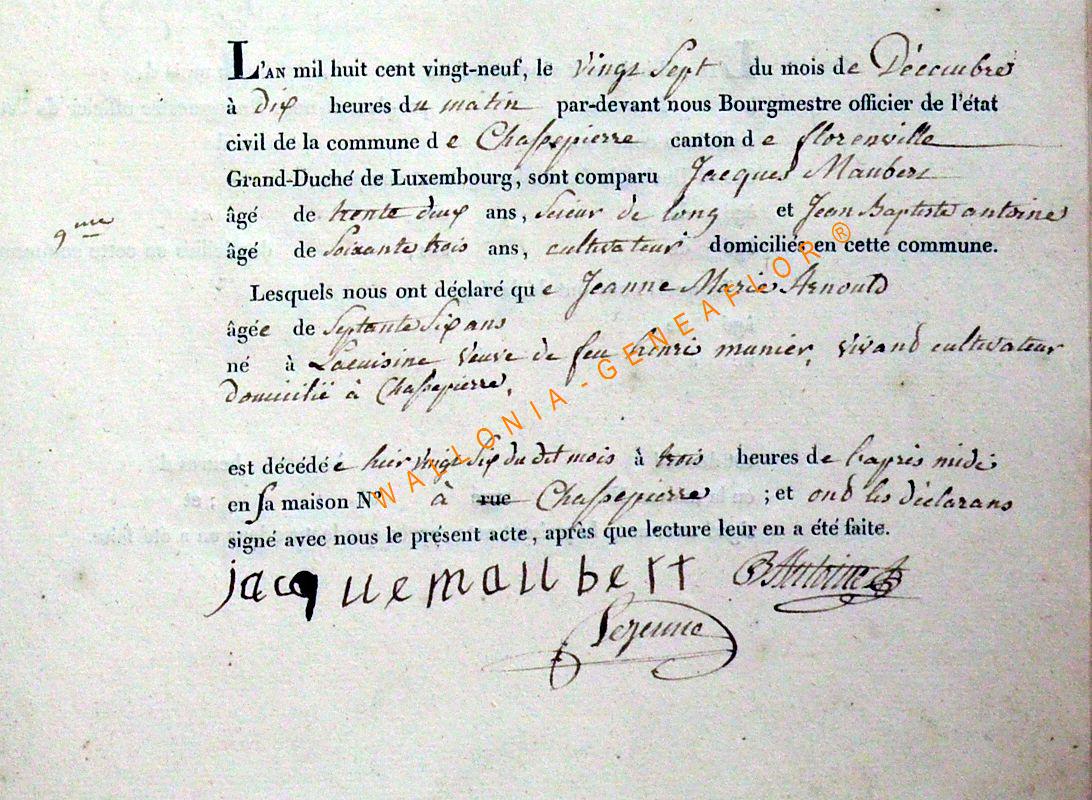 L'AN mil huit cent vingt-neuf, le vingt Sept du mois de Décembre
à dix heures du matin par-devant nous Bourgmestre officier de l'état
civil de la commune de Chassepierre canton de florenville
Grand-Duché de Luxembourg, sont comparu Jacques Maubert
âgé de trente deux ans, Scieur de long et Jean Baptiste antoine
9me
âgé de Soixante trois ans, cultivateur domiciliés en cette commune.
Lesquels nous ont déclaré que Jeanne Marie Arnould
âgée de Septante Six ans
né à Lacuisine veuve de feu henri munier, vivand cultivateur
domicilié à Chassepierre,
est décédée hier vingt Six du dit mois à trois heures de l'après midi
en sa maison N° à rue Chassepierre ; et ond les déclarans
signé avec nous le présent acte, après que lecture leur en a été faite.
jacque maubert JBAntoine
WALLONIA - GENEAFLOR ®